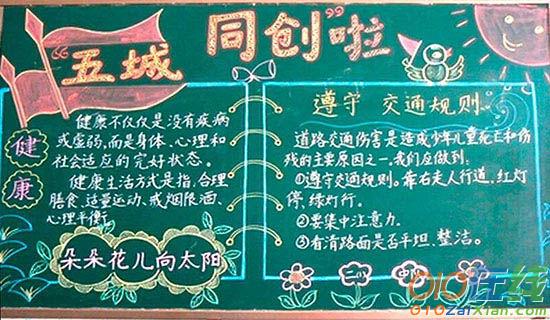 “五城同创”啦
健康
健康不仅仅是没有疾病
或虚弱,而是身体、心理和
社会适应的完好状态。
健康生活方式是指,合理
膳食、适量运动、戒烟限酒、
心理平衡
朵朵花儿向太阳
遵守 交通规则、
道路交通伤害是造成少年儿童死亡和伤
残的主要原因之一,我们应做到:
①遵守交通规则。靠右走人行道,红灯
停,绿灯行。
②要集中注意力.
③看清路面是否平坦、整洁。
二(
010在线
010zaixian.com